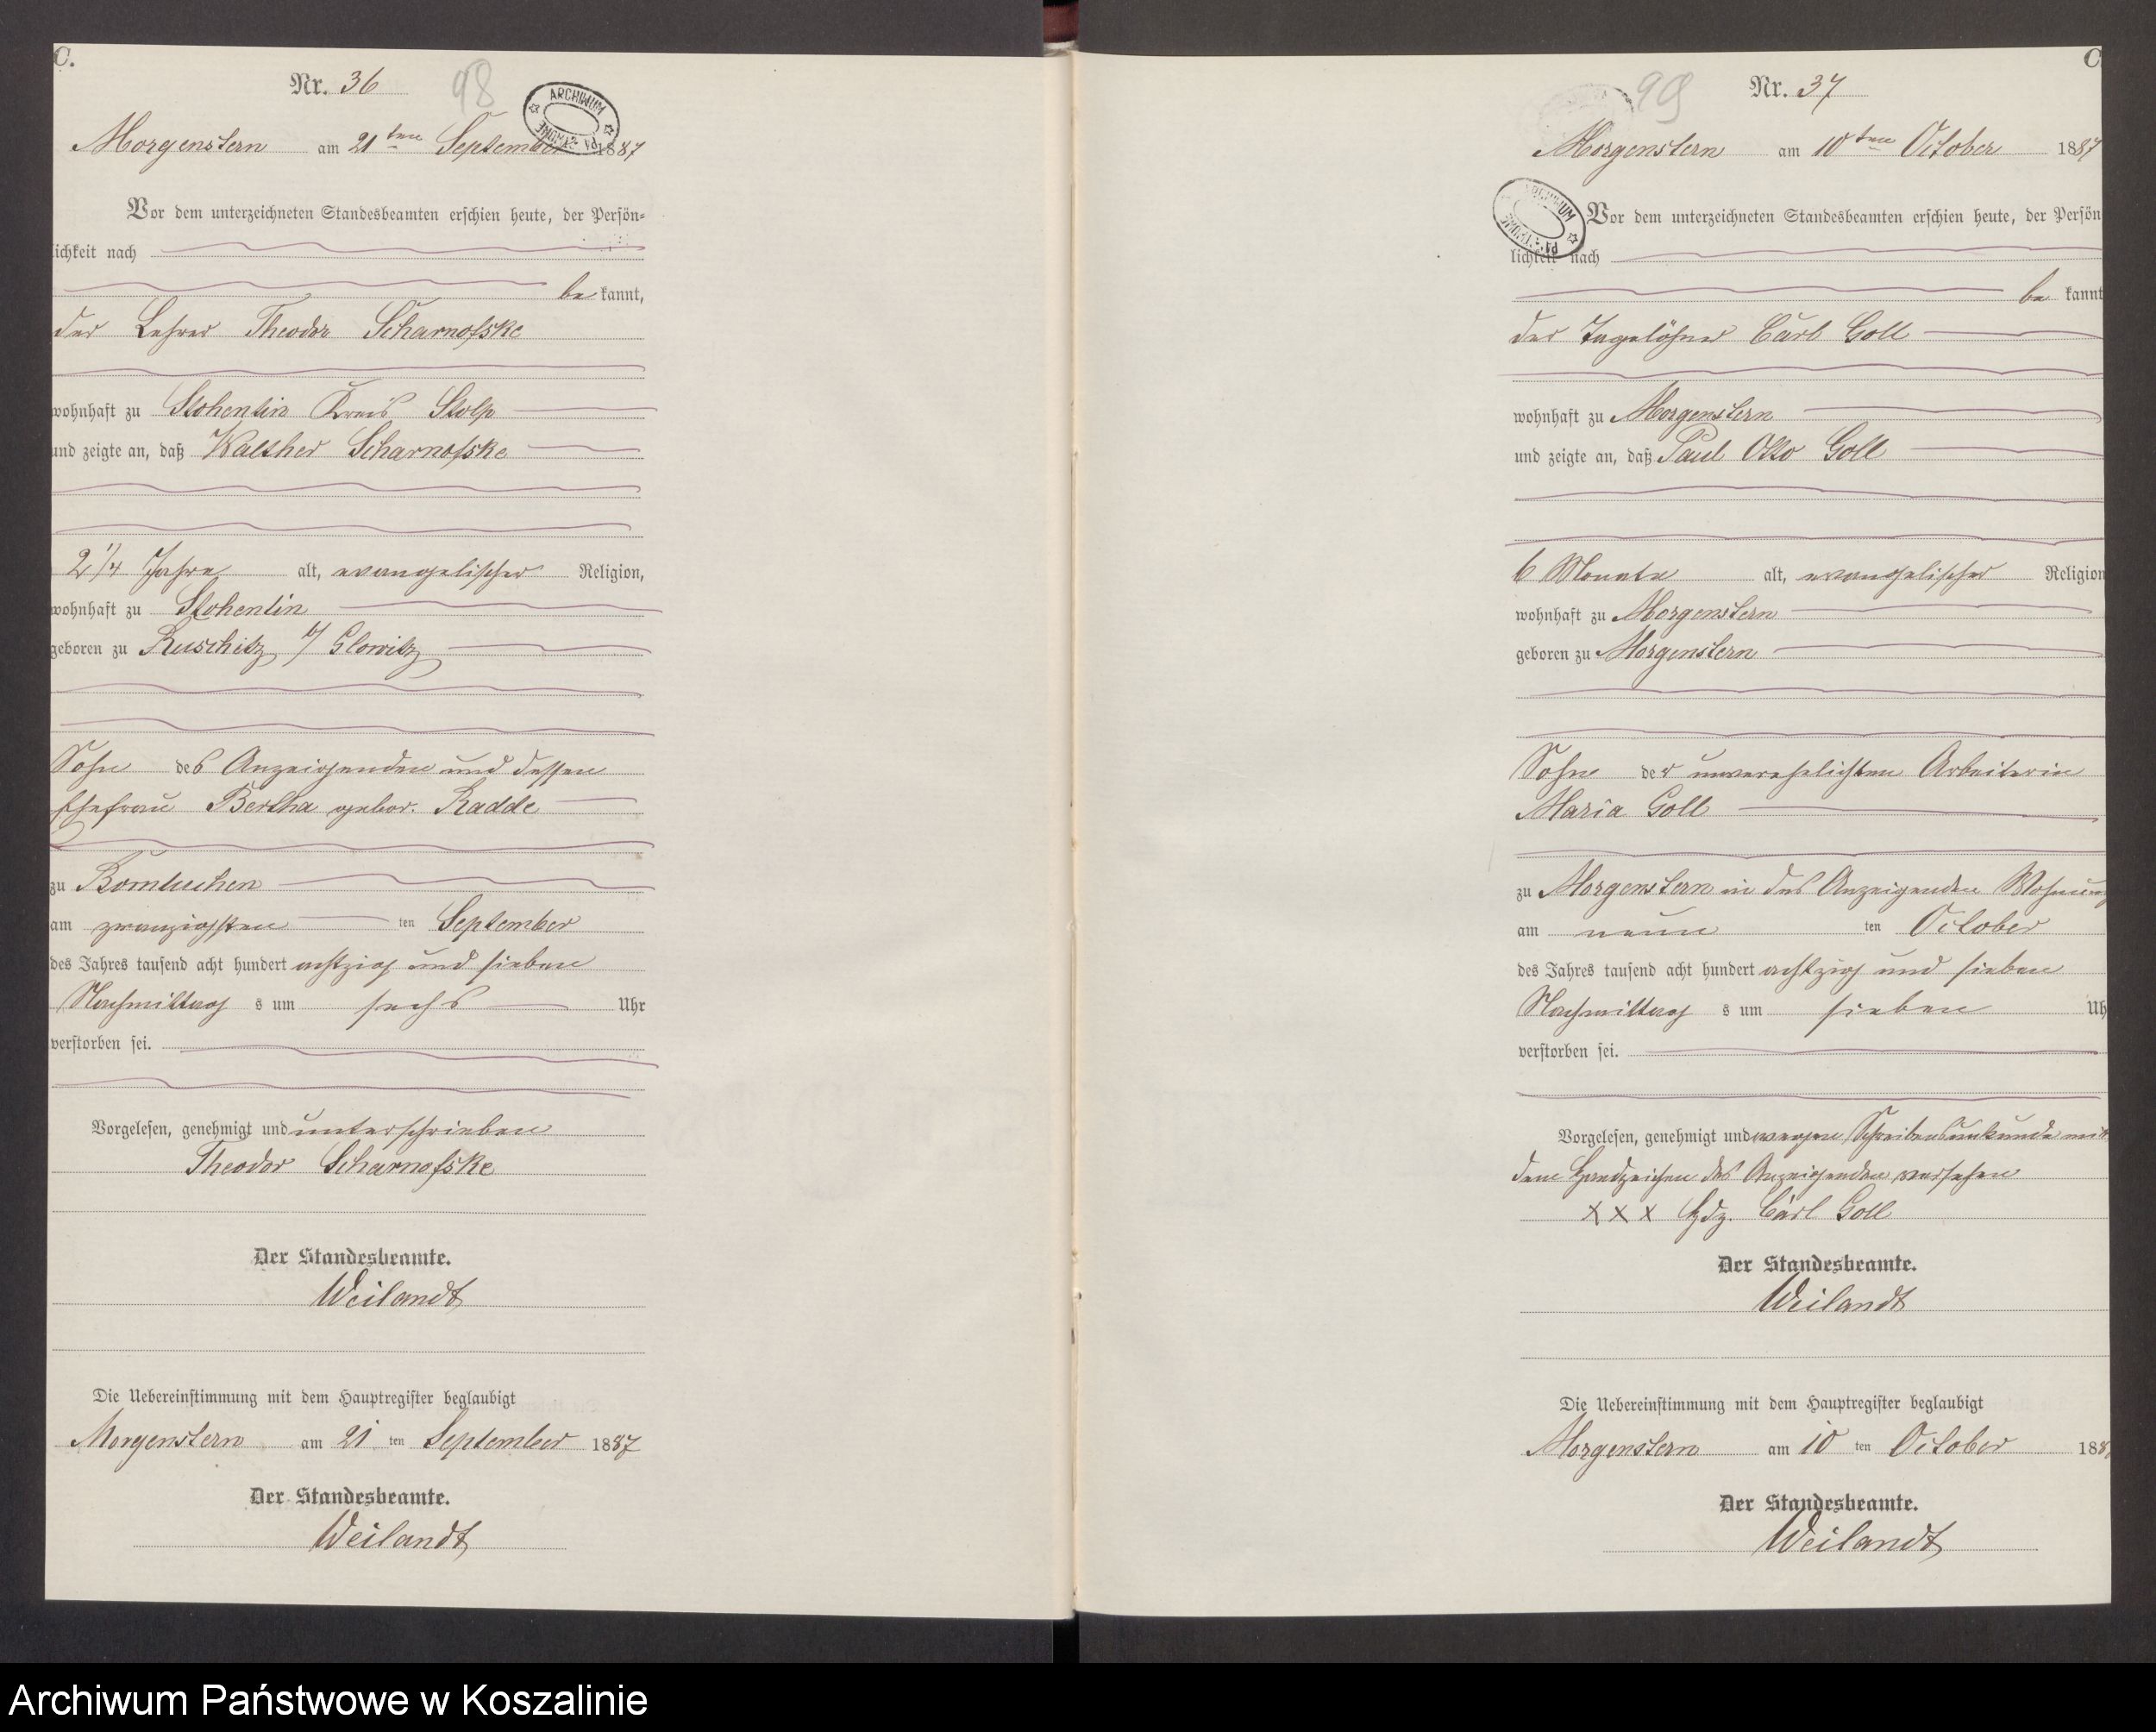 C.
Nr. 36
98
ARCHIWUM
Morgenstern am 21ten September 1887
Vor dem unterzeichneten Standesbeamten erschien heute, der Persön-
lichkeit nach
be kannt,
der Lehrer Theodor Scharnofske
wohnhaft zu Stohentin Kreis Stolp
und zeigte an, daß Walther Scharnofske
2 1/4 Jahre alt, evangelischer Religion,
wohnhaft zu Stohentin
geboren zu Ruschitz b/ Glowitz
Sohn des Anzeigenden und dessen
Ehefrau Bertha gebor. Radde
zu Bomluchen
am zwanzigsten ten September
des Jahres tausend acht hundert achtzig und sieben
Nachmittag s um sechs Uhr
verstorben sei.
Vorgelesen, genehmigt und unterschrieben
Theodor Scharnofske
Der Standesbeamte.
Weilandt
Die Uebereinstimmung mit dem Hauptregister beglaubigt
Morgenstern am 21 ten September 1887
Der Standesbeamte.
Weilandt
C
Nr. 37
99
Morgenstern am 10ten October 1887
ARCHIWUM
Vor dem unterzeichneten Standesbeamten erschien heute, der Persön
lichkeit nach
be kannt
der Tagelöhner Carl Goll
wohnhaft zu Morgenstern
und zeigte an, daß Paul Otto Goll
6 Monate alt, evangelischer Religion
wohnhaft zu Morgenstern
geboren zu Morgenstern
Sohn der unverehelichten Arbeiterin
Maria Goll
zu Morgenstern in des Anzeigenden Wohnung
am neun ten October
des Jahres tausend acht hundert achtzig und sieben
Nachmittag s um sieben Uh
verstorben sei.
Vorgelesen, genehmigt und wegen Schreibensunkunde mit
dem Handzeichen des Anzeigenden versehen
x x x Hdz. Carl Goll
Der Standesbeamte.
Weilandt
Die Uebereinstimmung mit dem Hauptregister beglaubigt
Morgenstern am 10 ten October 188
Der Standesbeamte.
Weilandt
Archiwum Państwowe w Koszalinie